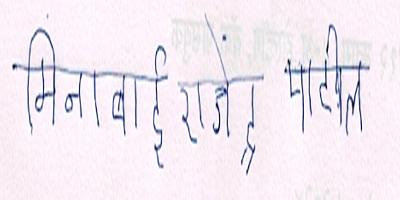 मिनाबाई राजेंद्र पाटील